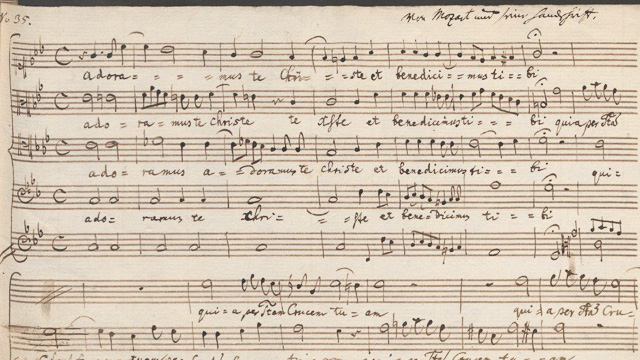 No 35. Von Mozart und seine Handschrift.
adora = = = = mus te Chri = = ste et benedici = = mus ti = = bi
ado = = ra = mus te Christe te Xste et benedicimus ti = = bi quia per
ado = ramus a = = doramus te christe et benedicimus ti = = bi qui =
ado = ramus te Chri = = = ste et bene = dicimus ti = = bi
qui = a per Crucem tu = am qui = a per Cru =